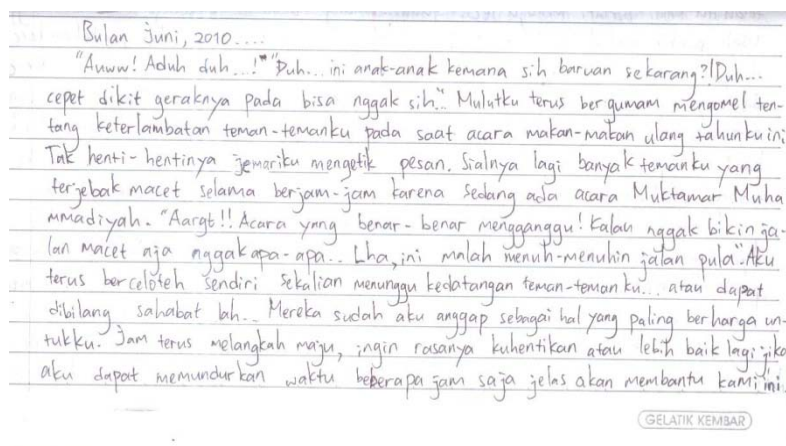 Bulan Juni, 2010....
"Auww! Aduh duh...!" "Duh... ini anak-anak kemana sih baruan sekarang?! Duh...
cepet dikit geraknya pada bisa nggak sih.." Mulutku terus bergumam mengomel ten-
tang keterlambatan teman-temanku pada saat acara makan-makan ulang tahunku ini.
Tak henti-hentinya jemariku mengetik pesan. Sialnya lagi banyak temanku yang
terjebak macet selama berjam-jam karena sedang ada acara Muktamar Muha
mmadiyah. "Aargt!! Acara yang benar-benar mengganggu! Kalau nggak bikin ja-
lan macet aja nggak apa-apa.. Lha, ini malah menuh-menuhin jalan pula". Aku
terus berceloteh sendiri sekalian menunggu kedatangan teman-temanku... atau dapat
dibilang sahabat lah... Mereka sudah aku anggap sebagai hal yang paling berharga un-
tukku. Jam terus melangkah maju, ingin rasanya kuhentikan atau lebih baik lagi jika
aku dapat memundurkan waktu beberapa jam saja jelas akan membantu kami ini
GELATIK KEMBAR